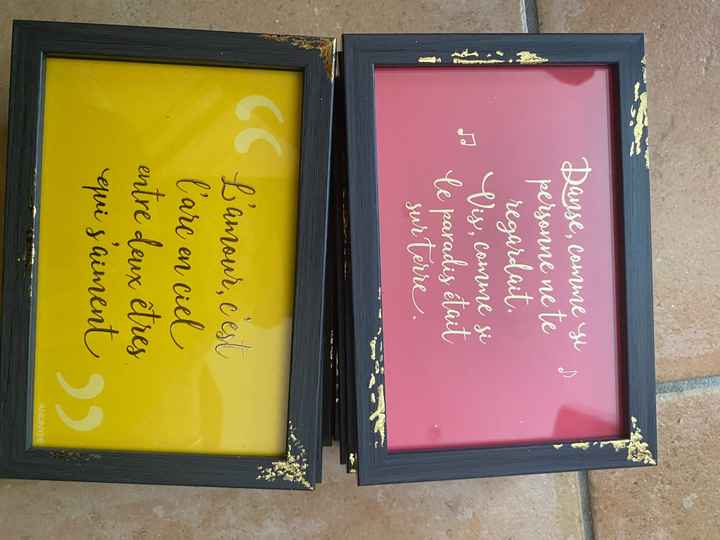 L'amour, c'est
l'arc en ciel
entre deux êtres
qui s'aiment
Danse, comme si
personne ne te
regardait.
Vis, comme si
le paradis était
sur terre.